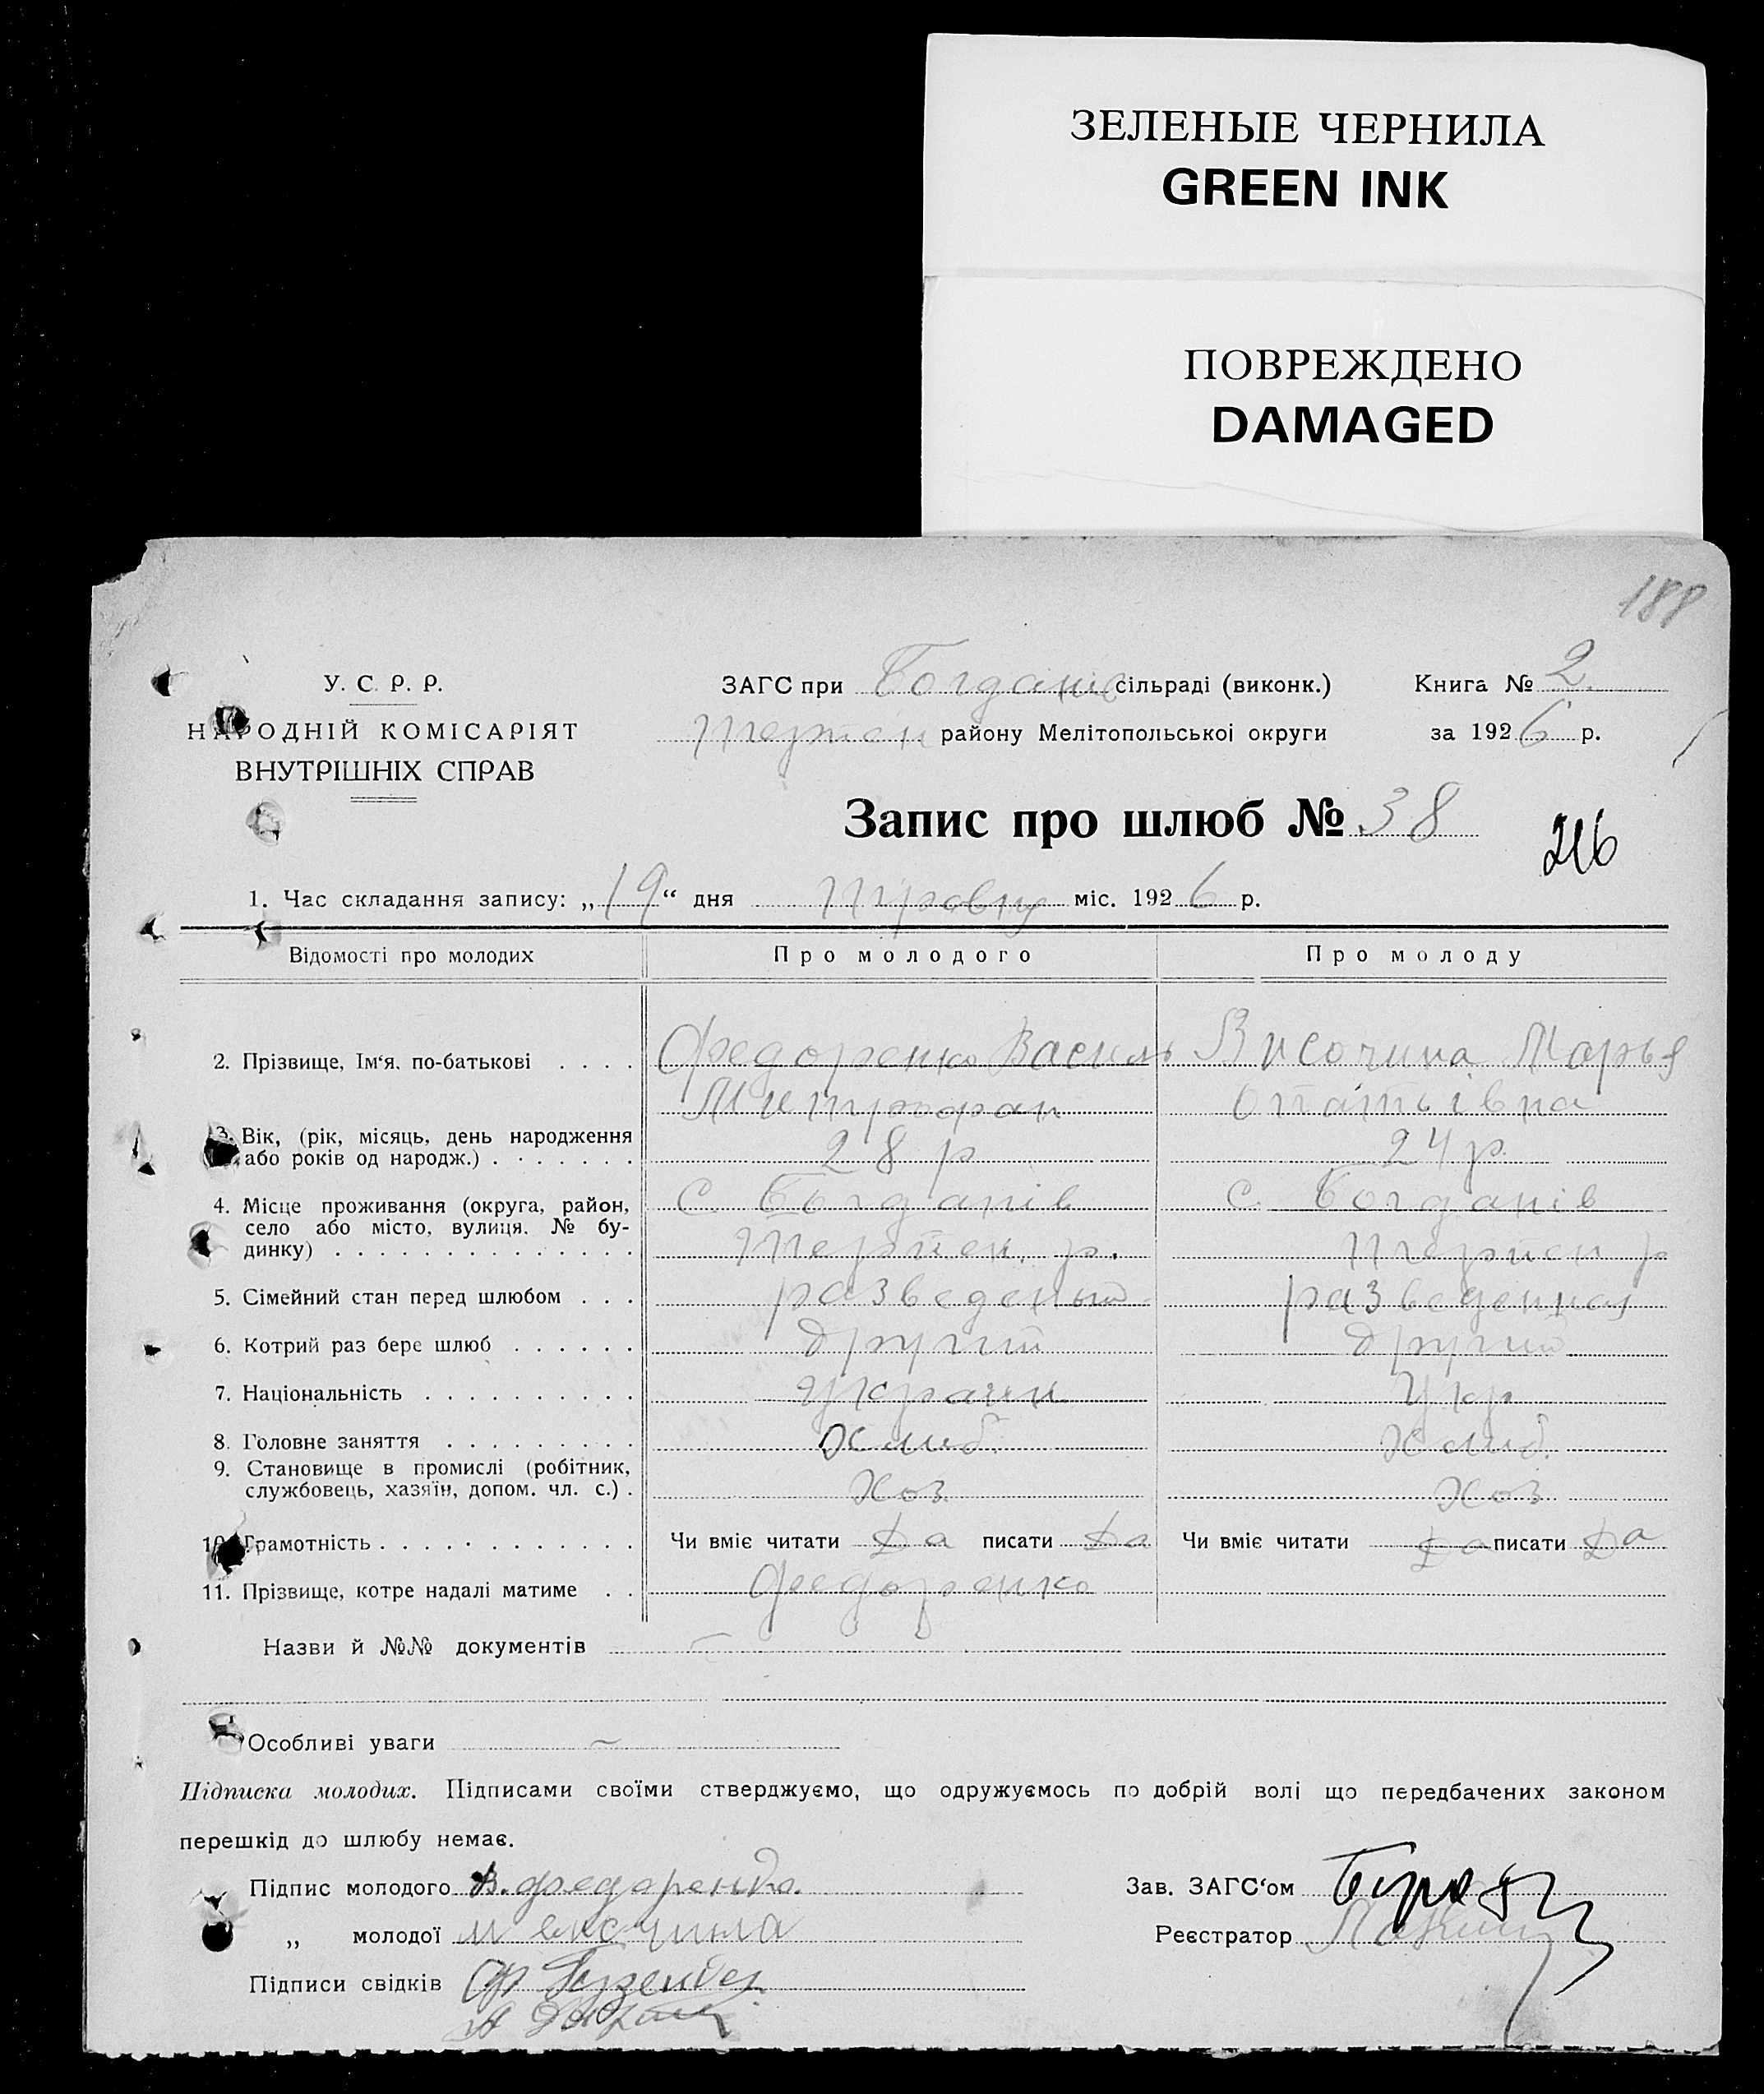 ЗЕЛЕНЫЕ ЧЕРНИЛА
GREEN INK
ПОВРЕЖДЕНО
DAMAGED
188
У. С. Р. Р.
НАРОДНІЙ КОМІСАРІЯТ
ВНУТРІШНІХ СПРАВ
ЗАГС при Богданів сільраді (виконк.) Книга № 2
Терпен району Мелітопольської округи за 1926 р.
Запис про шлюб № 38
216
1. Час складання запису: „19“ дня Травня міс. 1926 р.
Відомості про молодих Про молодого Про молоду
2. Прізвище, Ім‘я. по-батькові Федоренко Василь Височина Марья
Митрофан Опатьівна
3. Вік, (рік, місяць, день народження
або років од народж.) 28 р 24 р.
4. Місце проживання (округа, район, с. Богданів с. Богданів
село або місто, вулиця. № бу-
динку) Терпен. р. Терпен р
5. Сімейний стан перед шлюбом разведеный разведенная
6. Котрий раз бере шлюб другий другий
7. Національність украин укр
8. Головне заняття Хлиб. Хлиб.
9. Становище в промислі (робітник,
службовець, хазяїн, допом. чл. с.) Хоз Хоз
10. Грамотність Чи вміє читати Да писати Да Чи вміє читати Да писати Да
11. Прізвище, котре надалі матиме Федоренко
Назви й №№ документів —
Особливі уваги ~
Підписка молодих. Підписами своїми стверджуємо, що одружуємось по добрій волі що передбачених законом
перешкід до шлюбу немає.
Підпис молодого В. Федоренко. Зав. ЗАГС‘ом
„ молодої М Височина Реєстратор
Підписи свідків Ф.